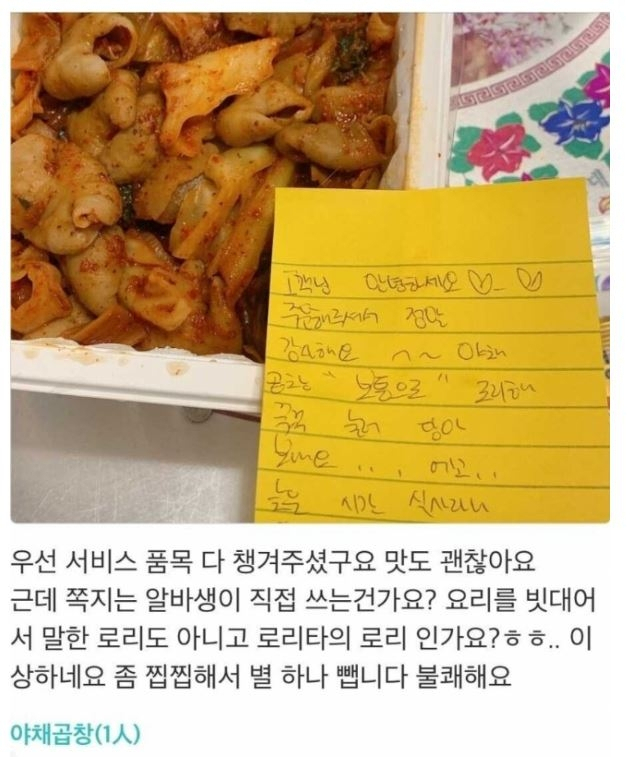 고객님 안녕하세요
주문해주셔서 정말
감사해요 ~~ 야채
곱창 "보통으로" 조리해
꾹꾹 눌러 담아
보내요 ... 에고..
늦은 시간 식사라니
우선 서비스 품목 다 챙겨주셨구요 맛도 괜찮아요
근데 쪽지는 알바생이 직접 쓰는건가요? 요리를 빗대어
서 말한 로리도 아니고 로리타의 로리 인가요?ㅎㅎ.. 이
상하네요 좀 찝찝해서 별 하나 뺍니다 불쾌해요
야채곱창(1人)